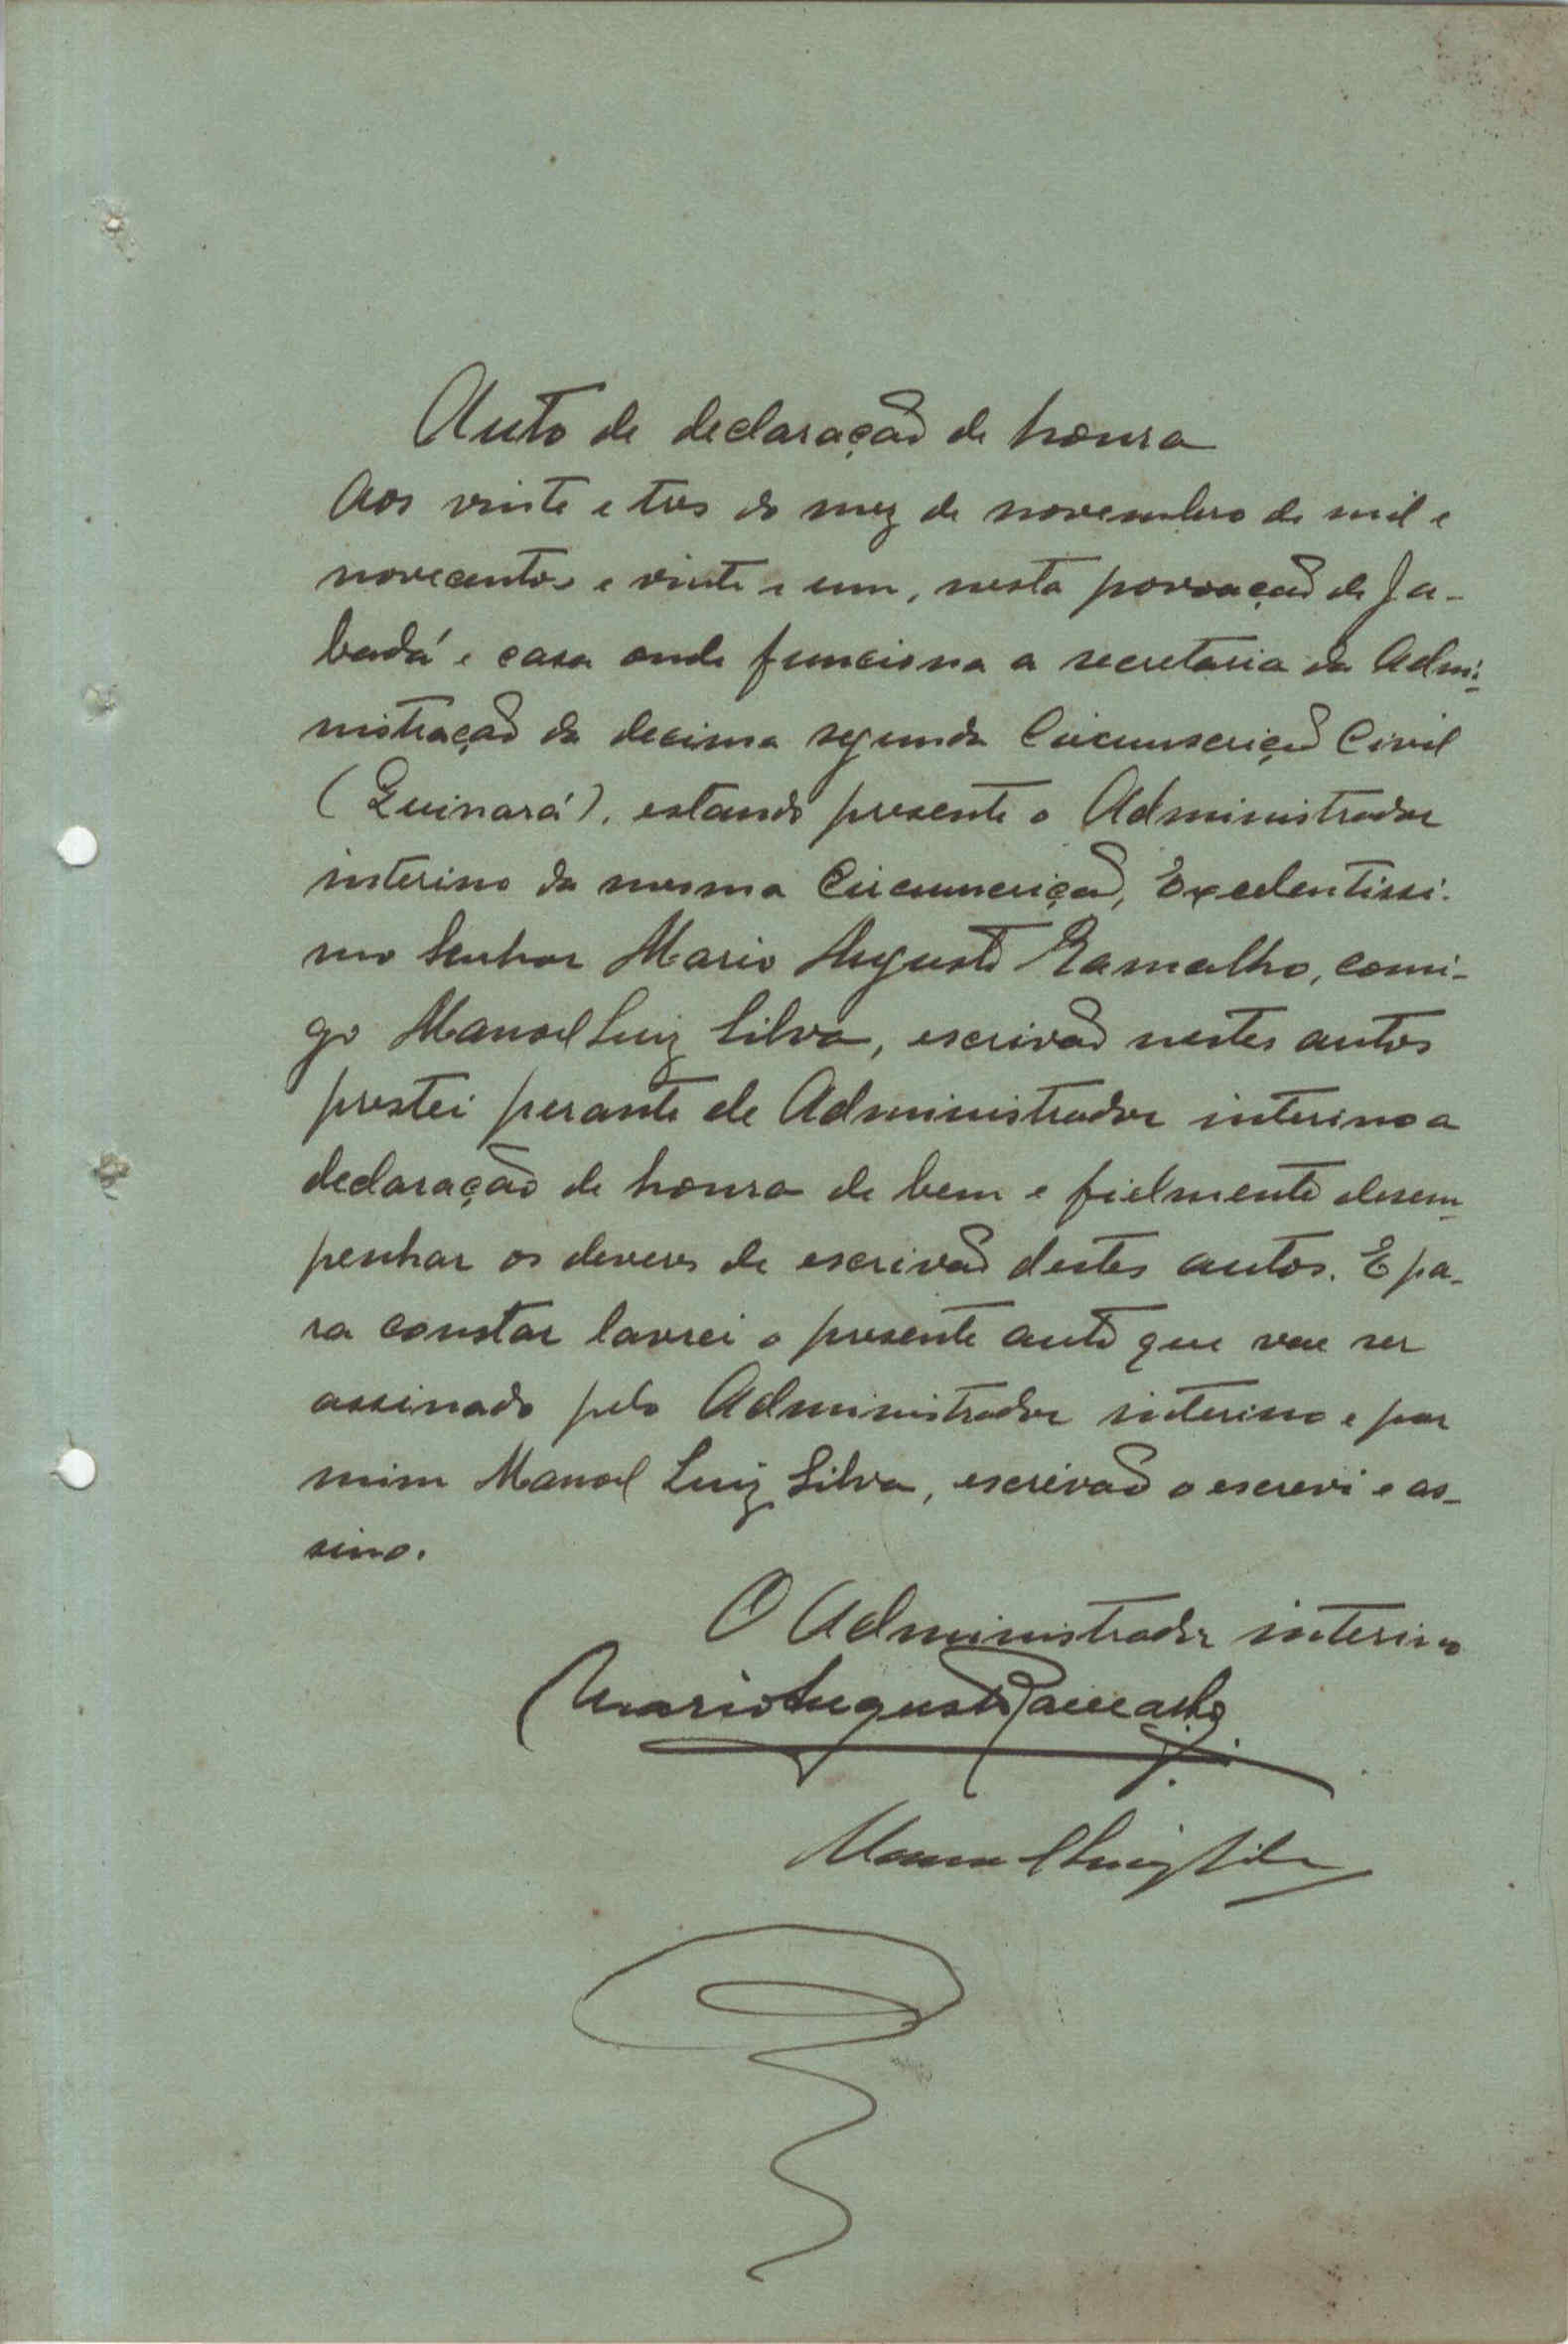 Auto de declaração de honra
Aos vinte e tres do mez de novembro de mil e
novecentos e vinte e um, nesta povoação de Ja-
badá e casa onde funciona a secretaria da Admi-
nistração da decima segunda Circumscrição Civil
(Quinará), estando presente o Administrador
interino da mesma Circumscrição, Excelentissi-
mo Senhor Mario Augusto Ramalho, comi-
go Manoel Luiz Silva, escrivão nestes autos
prestei perante ele Administrador interino a
declaração de honra de bem e fielmente desem-
penhar os deveres de escrivão destes autos. E pa-
ra constar lavrei o presente auto que vae ser
assinado pelo Administrador interino e por
mim Manoel Luiz Silva, escrivão o escrevi e as-
sino.
O Administrador interino
Mario Augusto Ramalho
Manoel Luiz Silva